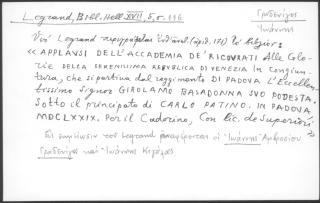 Legrand, Bibl. Hell. XVII, 5, σ. 116
Γραδενίγος
Ἰωάννης
Ὑπὸ Legrand περιγράφεται
« APPLAUSI DELL'ACCADEMIA DE' RICOVRATI Alle Glo-
rie DELLA SERENISSIMA REPUBLICA DI VENEZIA In congiun-
tura, che si partiva dal reggimento DI PADOVA L'Eccellen-
tissimo Signor GIROLAMO BASADONNA SUO PODESTA.
Sotto il principato di CARLO PATINO. IN PADOVA
MDCLXXIX. Per il Cadorino, Con lic. de Superiori.»
Σὲ σημείωσιν τοῦ Legrand ἀναφέρονται οἱ "Ἰωάννης" Ἀμβροσίου
Γραδενίγος καὶ "Ἰωάννης